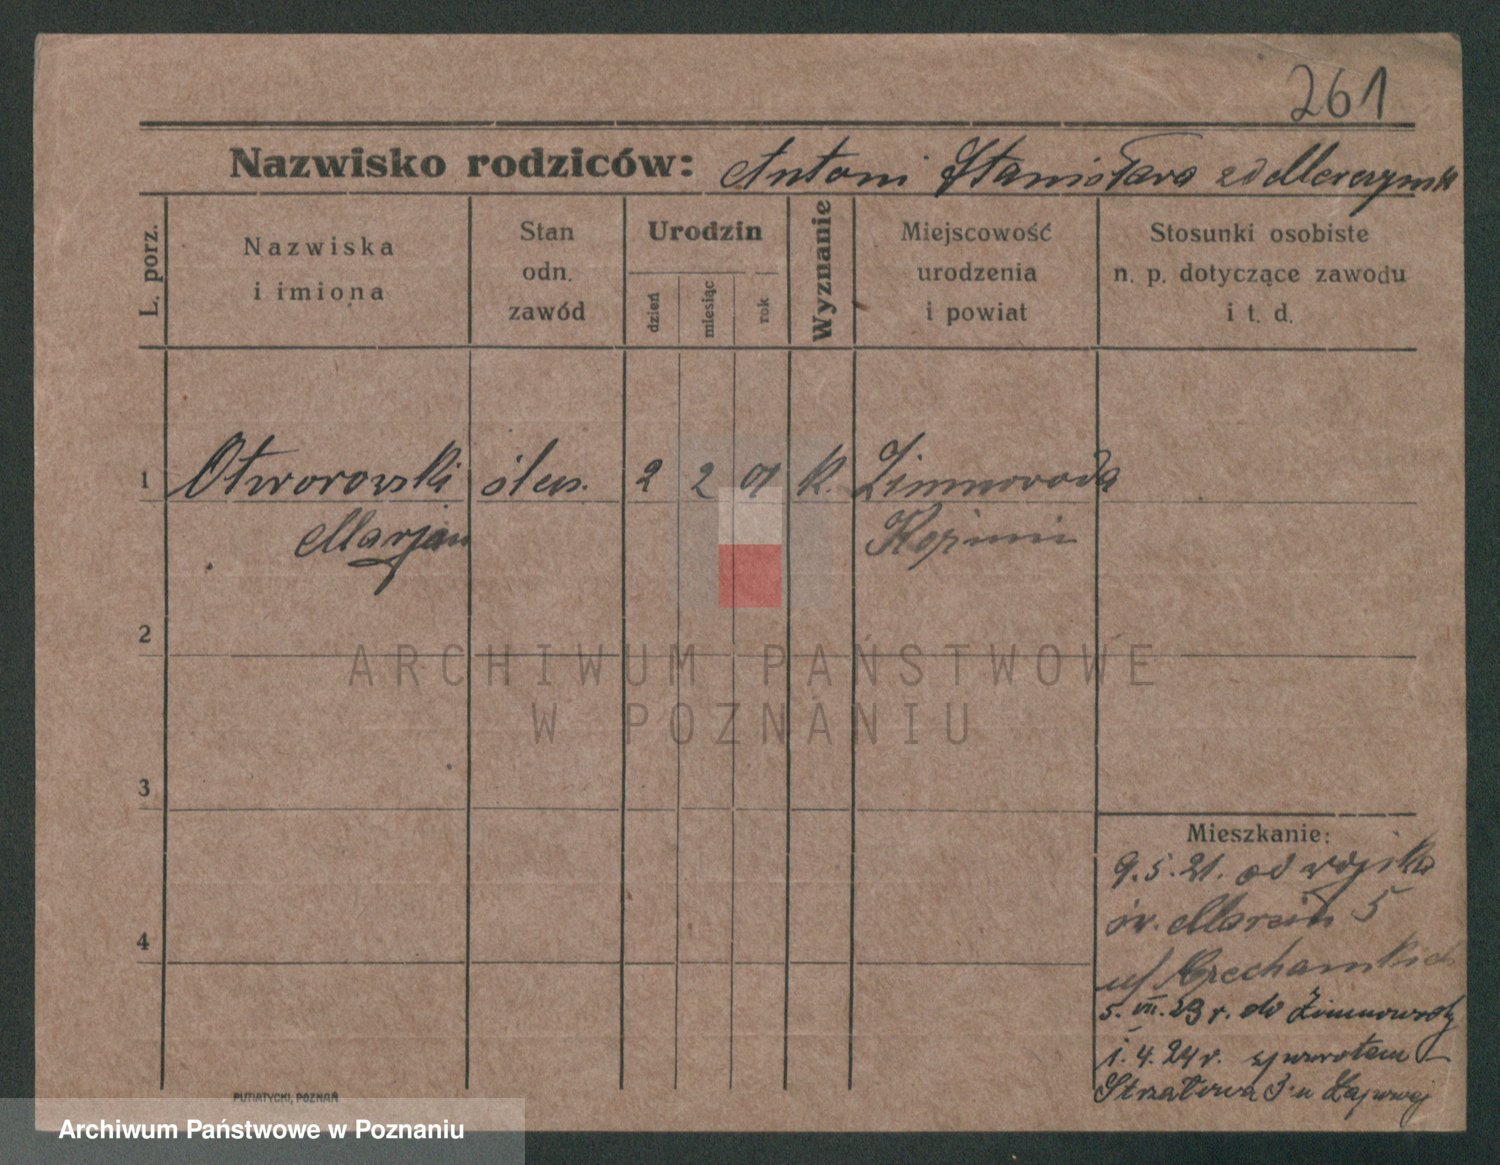 261
Nazwisko rodziców: Antoni Stanisława
L. porz.
Nazwiska
i imiona
Stan
odn.
zawód
Urodzin
dzień
miesiąc
rok
Wyznanie
Miejscowość
urodzenia
i powiat
Stosunki osobiste
n. p. dotyczące zawodu
i t. d.
1 Otworowski ślus. 2 2 01 k. Zimnowoda
Marjan Koźmin
2
ARCHIWUM PAŃSTWOWE
W POZNANIU
3
Mieszkanie:
9.5.21. od wojska
św. Marcin 5
4
5. VII. 23 r. do Zimnowody
1. 4. 24 r. zpowrotem
Strzałowa 3 u
PUTIATYCKI, POZNAŃ
Archiwum Państwowe w Poznaniu